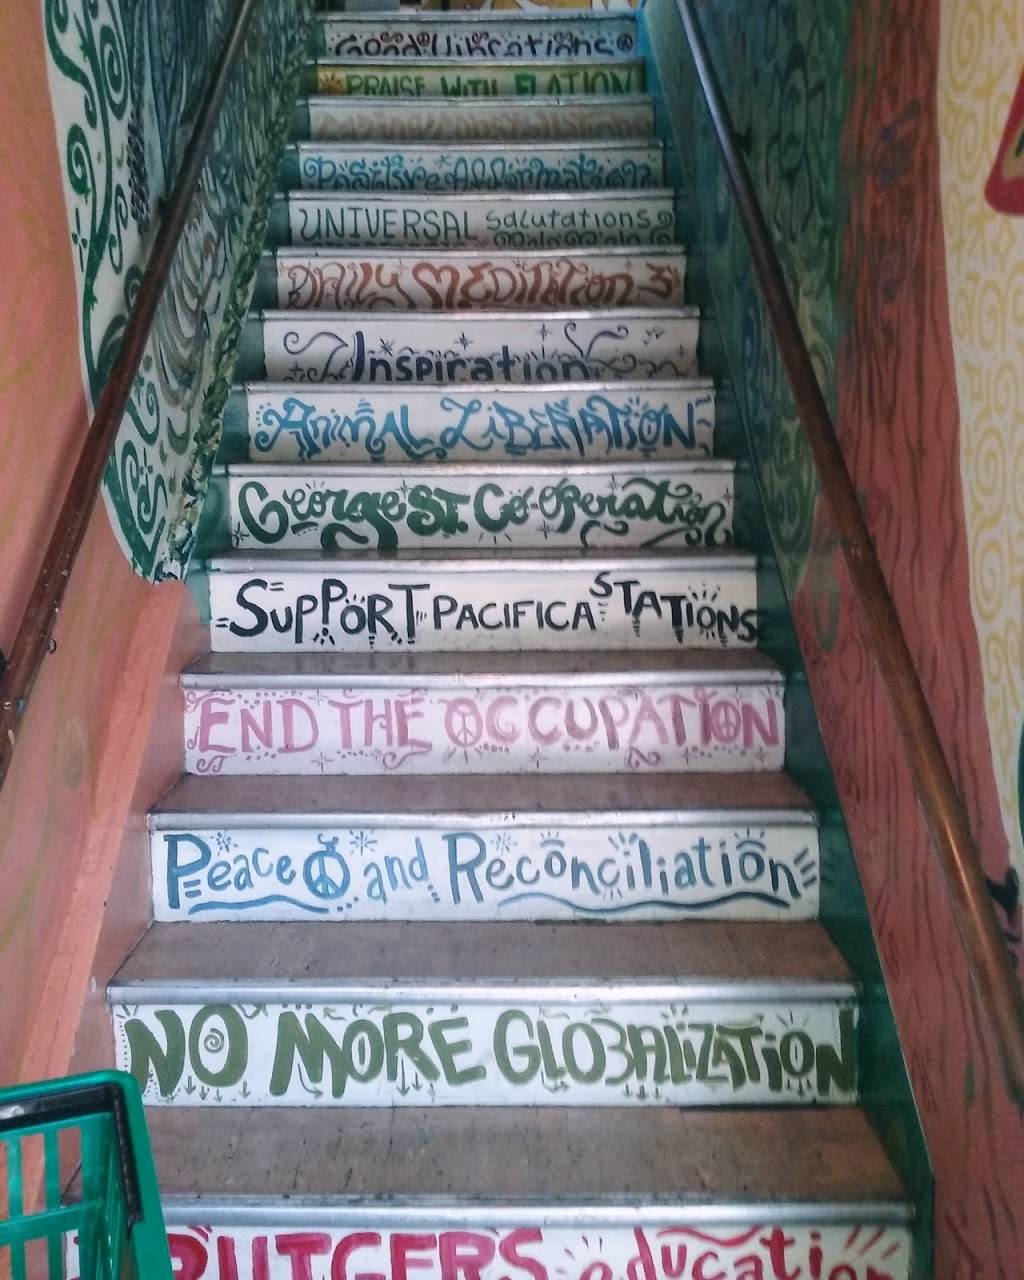 Good Vibrations
PRAISE WITH ELATION
Positive Affirmation
UNIVERSAL Salutations
DAILY MEDITATION
Inspiration
ANIMAL LIBERATION
George ST. Co-operation
SUPPORT PACIFICA STATIONS
END THE OCCUPATION
Peace and Reconciliation
NO MORE GLOBALIZATION
RUTGERS education